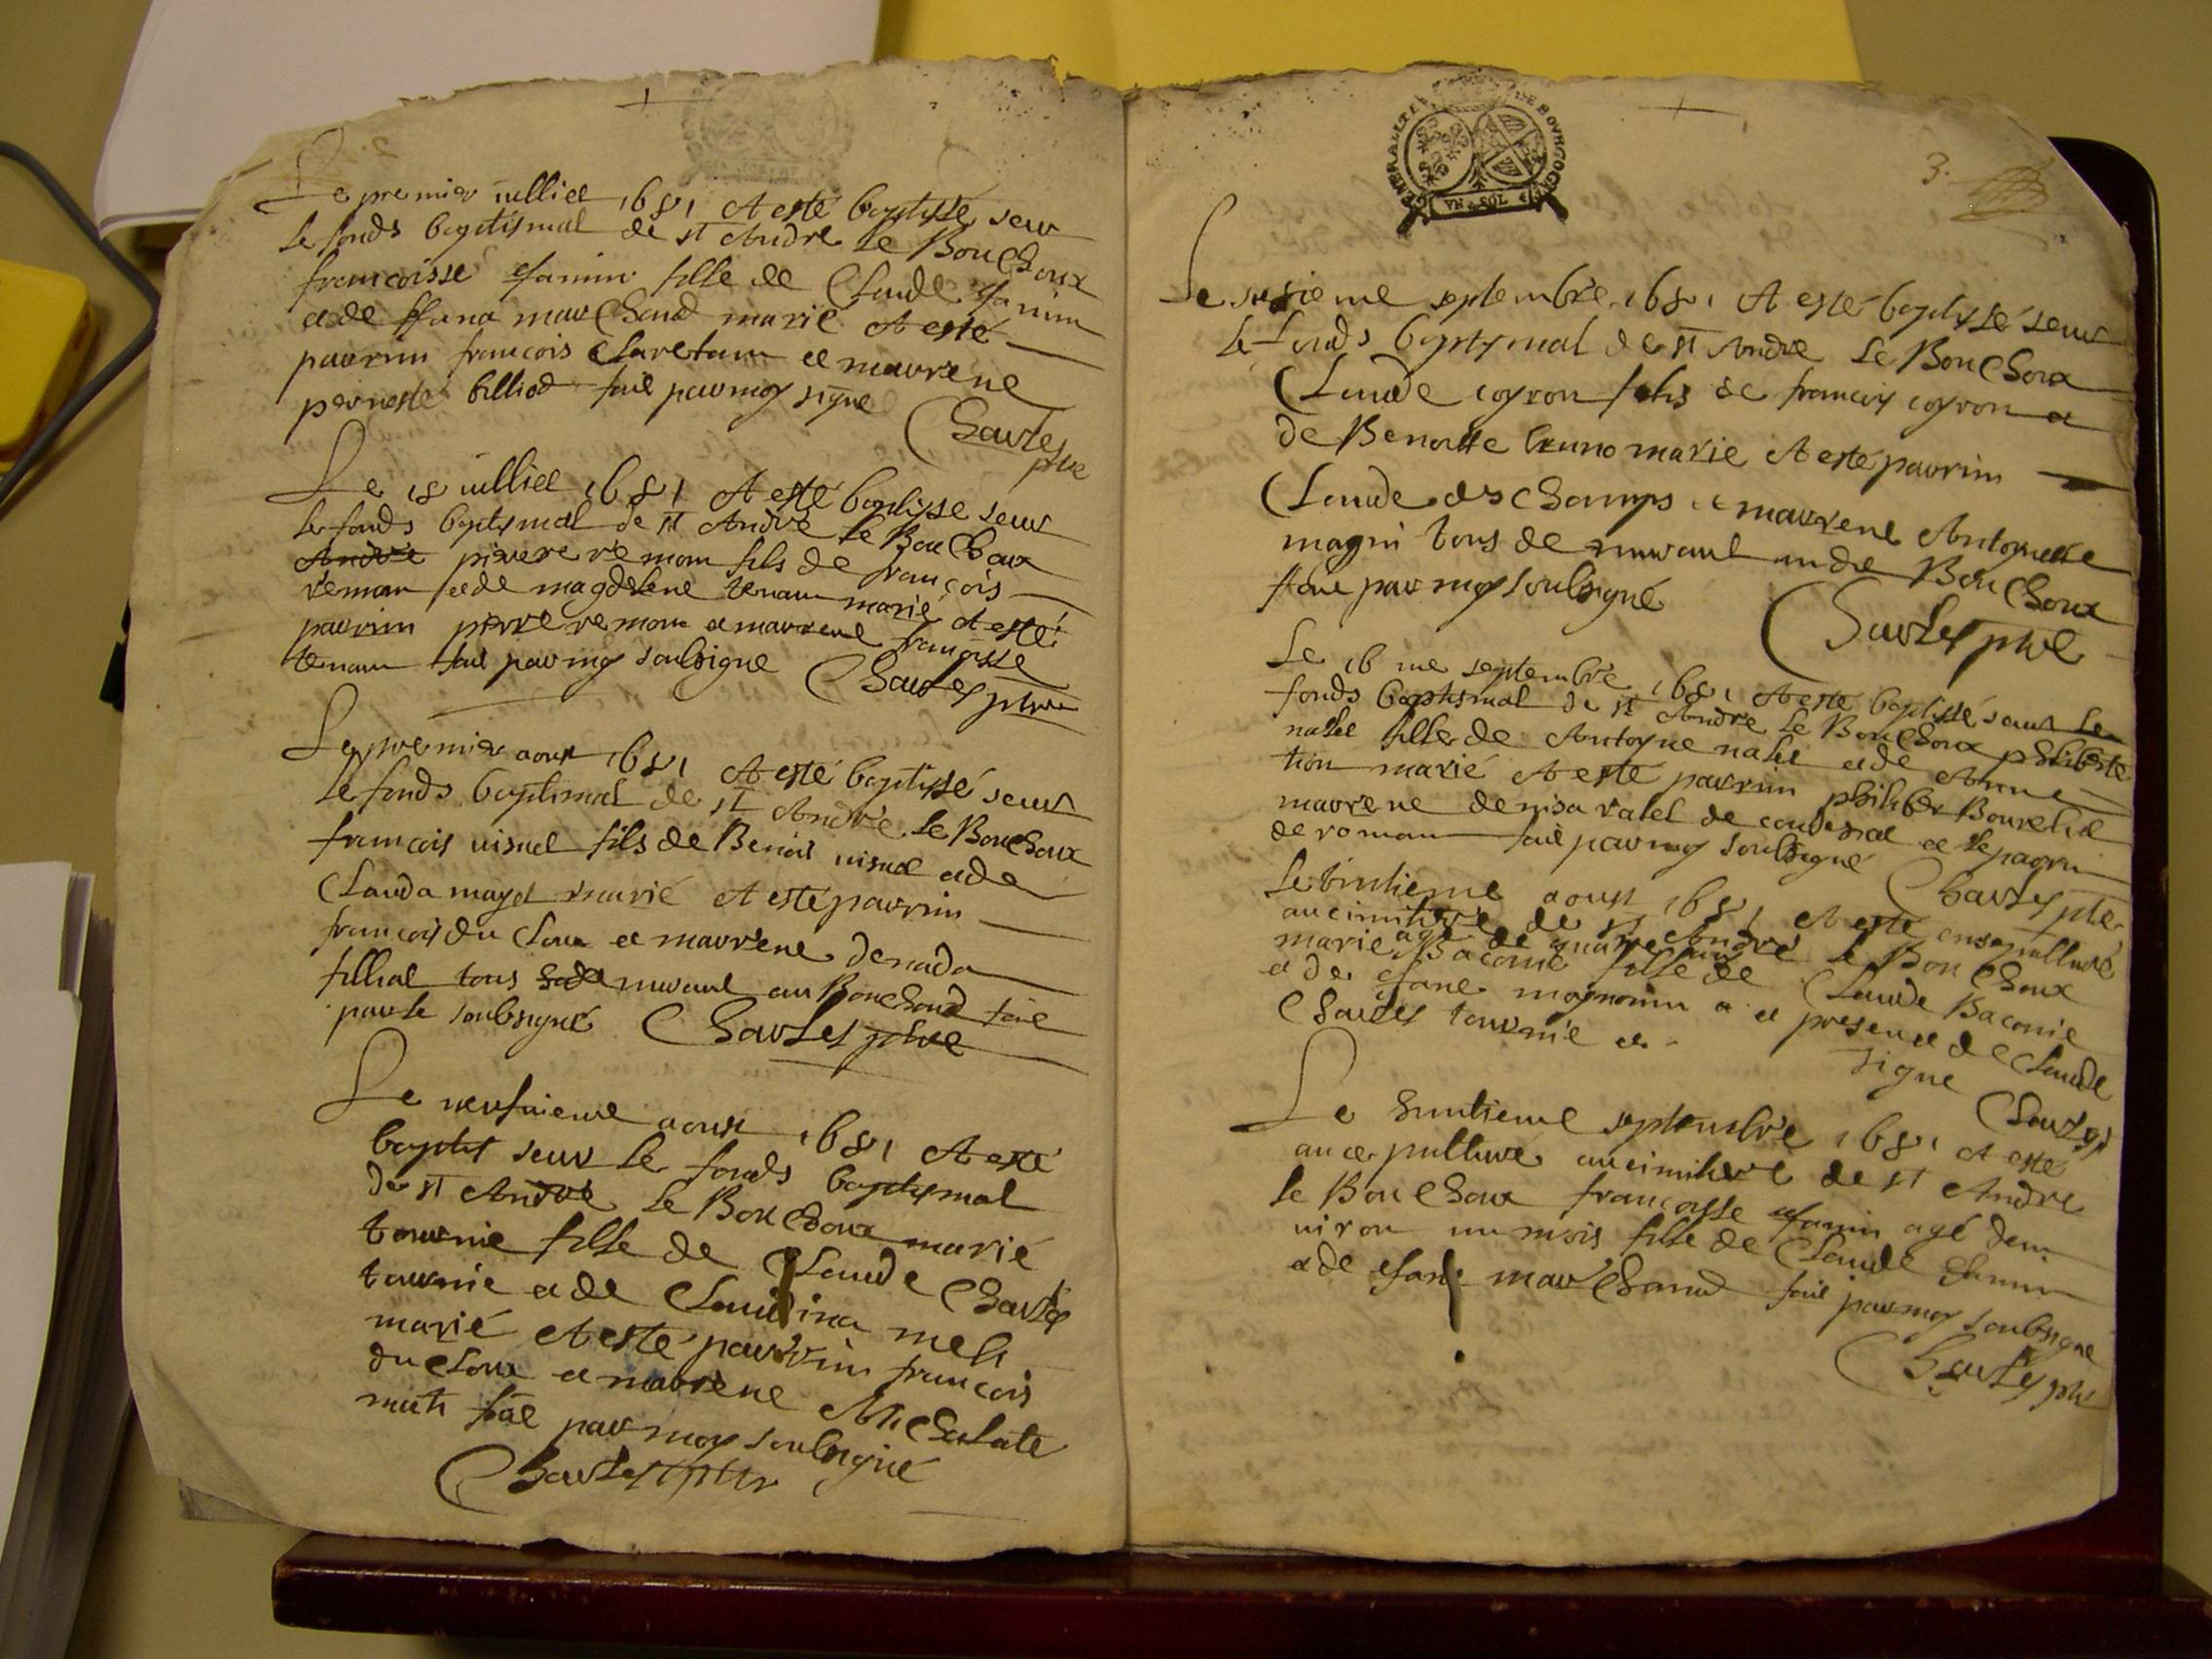 Le premier iulliet 1681 A esté baptissé seur
le fonds baptismal de st Andre le Bouchoux
francoisse Janin fille de Claude Janin
et de Jana marchand marié A esté
parrin francois Claretan et marrene
pernette billiod fait par moy signe
Charles
pbre
Le 18 iulliet 1681 A esté baptisse seur
le fonds baptismal de st Andre le Bouchoux
Andre pierre reman fils de francois
reman et de magdelene tenan marié A esté
parrin pierre reman et marrene francoisse
tenan fait par moy soubsigne Charles pbre
Le premier aoust 1681 A esté baptissé seur
le fonds baptimal de st Andre le Bouchoux
francois uisuel fils de Benoit uisuel et de
Clauda mayet marié A esté parrin
francois du Cloux et marrene denada
filliat tous de murant au Bouchoud fait
par le soubsigné Charles pbre
Le neufuieme aoust 1681 A esté
baptis seur le fonds baptismal
de st Andre le Bouchoux marié
tournie fille de Claude Charles
tournie et de Claudina meli
marié A esté parrin francois
du Cloux et marrene Michalate
muti fait par moy soubsigné
Charles pbre
GENERALITE DE BOVRGOGNE
VN SOL
3.
Le sixieme septembre 1681 A esté baptissé seur
le fonds baptismal de st Andre le Bouchoux
Claude coyron fils de francois coyron et
de Benoitte bruno marie A esté parrin
Claude des Champs et marrene Antoynette
magni tous de muvant au de Bouchoux
faict par moy soubsigné
Charles pbre
Le 16 me septembre 1681 A esté baptissé seur le
fonds baptismal de st Andre le Bouchoux philiberte
nalet fille de Antoyne nalet et de Anne
tion marié A esté parrin philiber Bourelie
marrene denisa ratel de et le parrin
de roman fait par moy soubsigné
Charles pbre
Le vintieme aoust 1681 A esté ensepulturé
au cimitiere de st Andre le Bouchoux
agé de quatre ans
marie Baconie fille de Claude Baconie
et de Jane magnonin a et presence de Claude
Charles tournié et signe
Charles
Le huntieme septembre 1681 A esté
ancepulture au cimitiere de st Andre
le Bouchoux francoisse Janin agé den
uiron un mois fille de Claude Janin
et de Jane marchand fait par moy soubsigne
Charles pbr